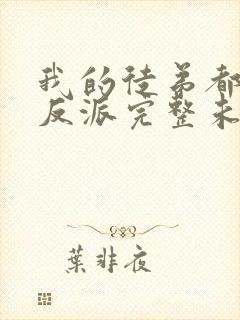 我的徒弟都
反派完整未
葉非夜